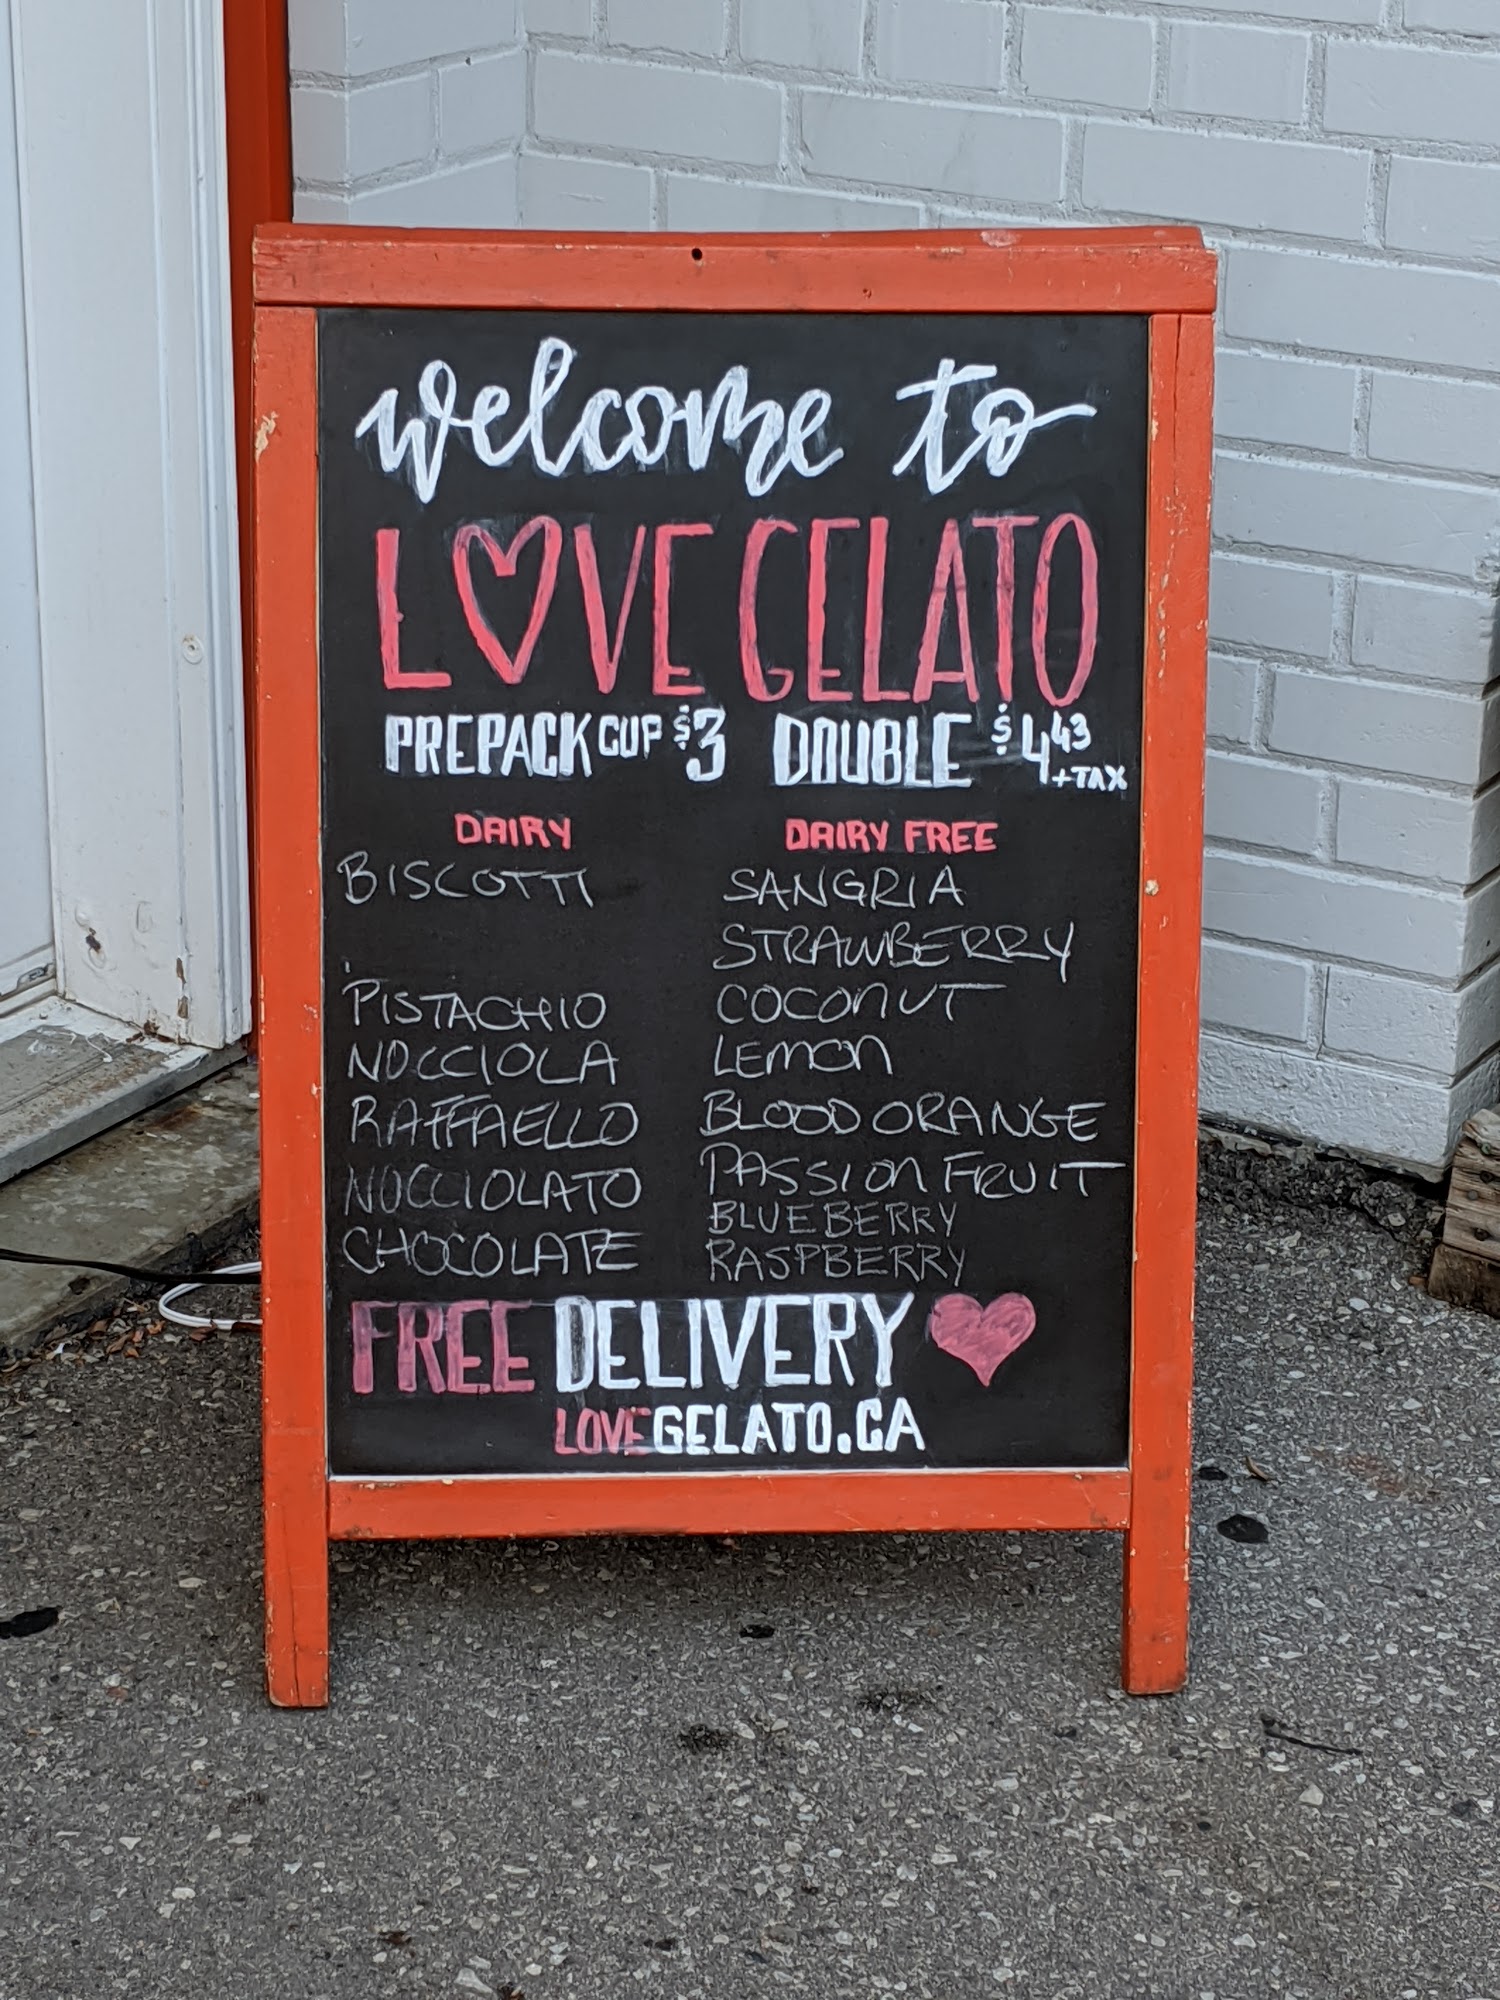 welcome to
LOVE GELATO
PREPACK CUP $3 DOUBLE $4.43 +TAX
DAIRY
BISCOTTI
PISTACHIO
NOCCIOLA
RAFFAELLO
NOCCIOLATO
CHOCOLATE
DAIRY FREE
SANGRIA
STRAWBERRY
COCONUT
LEMON
BLOOD ORANGE
PASSION FRUIT
BLUEBERRY
RASPBERRY
FREE DELIVERY
LOVEGELATO.CA